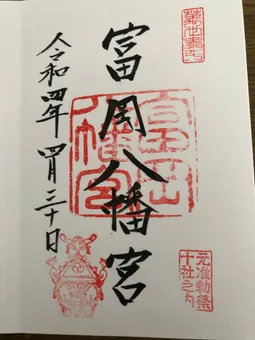 元准勅祭
十社之内
富岡八幡宮
富岡
八幡宮
令和四年四月三十日